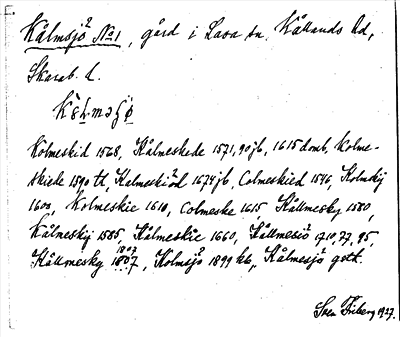 Kålmsjö № 1, gård i Lava sn. Kållands hd,
Skarab. l.
Kolmeskid 1568, Kålmeskede 1571, 90 jb, 1615 domb, Kolme-
skiede 1590 tl, Kalmeskiöd 1674 jb, Colmeskied 1546, Kolmskij
1600, Kolmeskie 1610, Colmeske 1615, Kållmesky 1580,
Kålmeskij 1585, Kålmeskie 1660, Kållmesiö 1710, 27, 95,
Kållmesky 1807, Kolmsjö 1899 kb, Kålmesjö gsth.
Sven Friberg 1927.